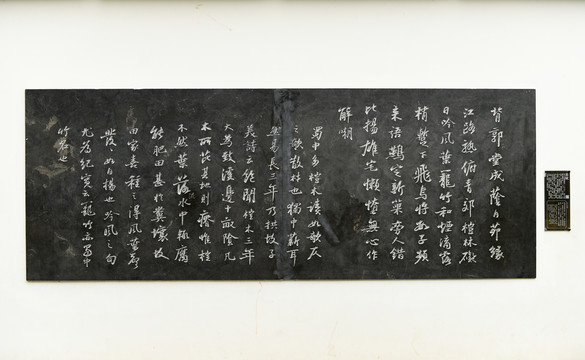 背郭堂成蔭白茅緣
江路熟俯青郊榿林礙
日吟風葉籠竹和煙滴露
梢暫下飛烏將數子頻
來語鷰定新巢旁人錯
比揚雄宅懶惰無心作
解嘲
蜀中多榿木讀如欹仄
之欹散材也獨中薪耳
然易長三年乃拱故子
美詩云飽聞榿木三年
大為致溪邊十畝陰凡
木所芘其地則瘠惟榿
不然葉落水中輒腐
能肥田甚於糞壤故
田家喜種之得風葉聲發
發如白楊也吟風之句
尤為紀實云籠竹亦蜀中
竹名也